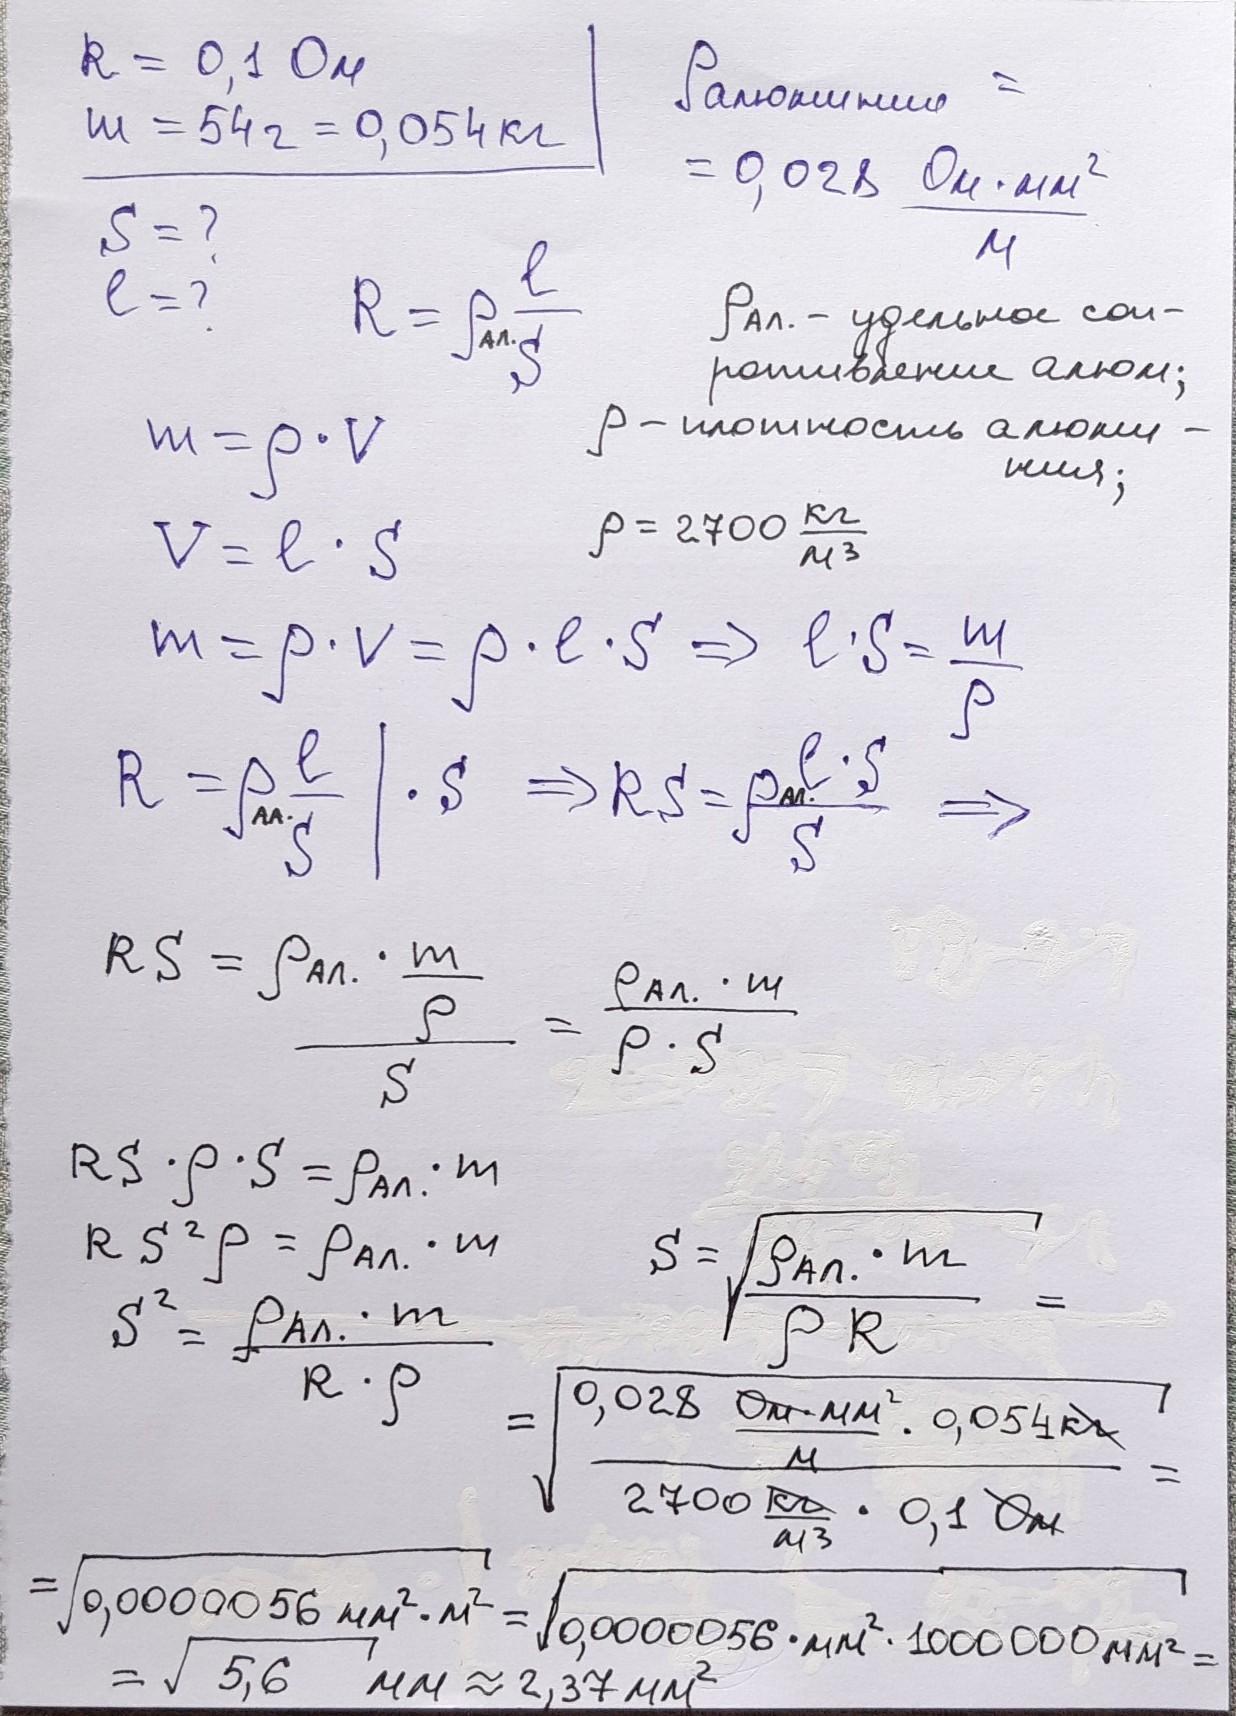 R = 0,1 Ом
m = 54г = 0,054 кг
S = ?
l = ?
ρалюминия =
= 0,028 Ом·мм²/м
R = ρАл. l/S
ρАл. – удельное соп-
ротивление алюм;
m = ρ · V
ρ – плотность алюми-
ния;
V = l · S
ρ = 2700 кг/м³
m = ρ · V = ρ · l · S ⇒ l · S = m/ρ
R = ρАл. l/S | · S ⇒ RS = ρАл. l · S/S ⇒
RS = (ρАл. · m/ρ)/S = (ρАл. · m)/(ρ · S)
RS · ρ · S = ρАл. · m
RS²ρ = ρАл. · m
S² = (ρАл. · m)/(R · ρ)
S = √((ρАл. · m)/(ρ R)) =
= √((0,028 Ом·мм²/м · 0,054 кг)/(2700 кг/м³ · 0,1 Ом)) =
= √(0,0000056 мм² · м²) = √(0,0000056 · мм² · 1000000 мм²) =
= √5,6 мм ≈ 2,37 мм²